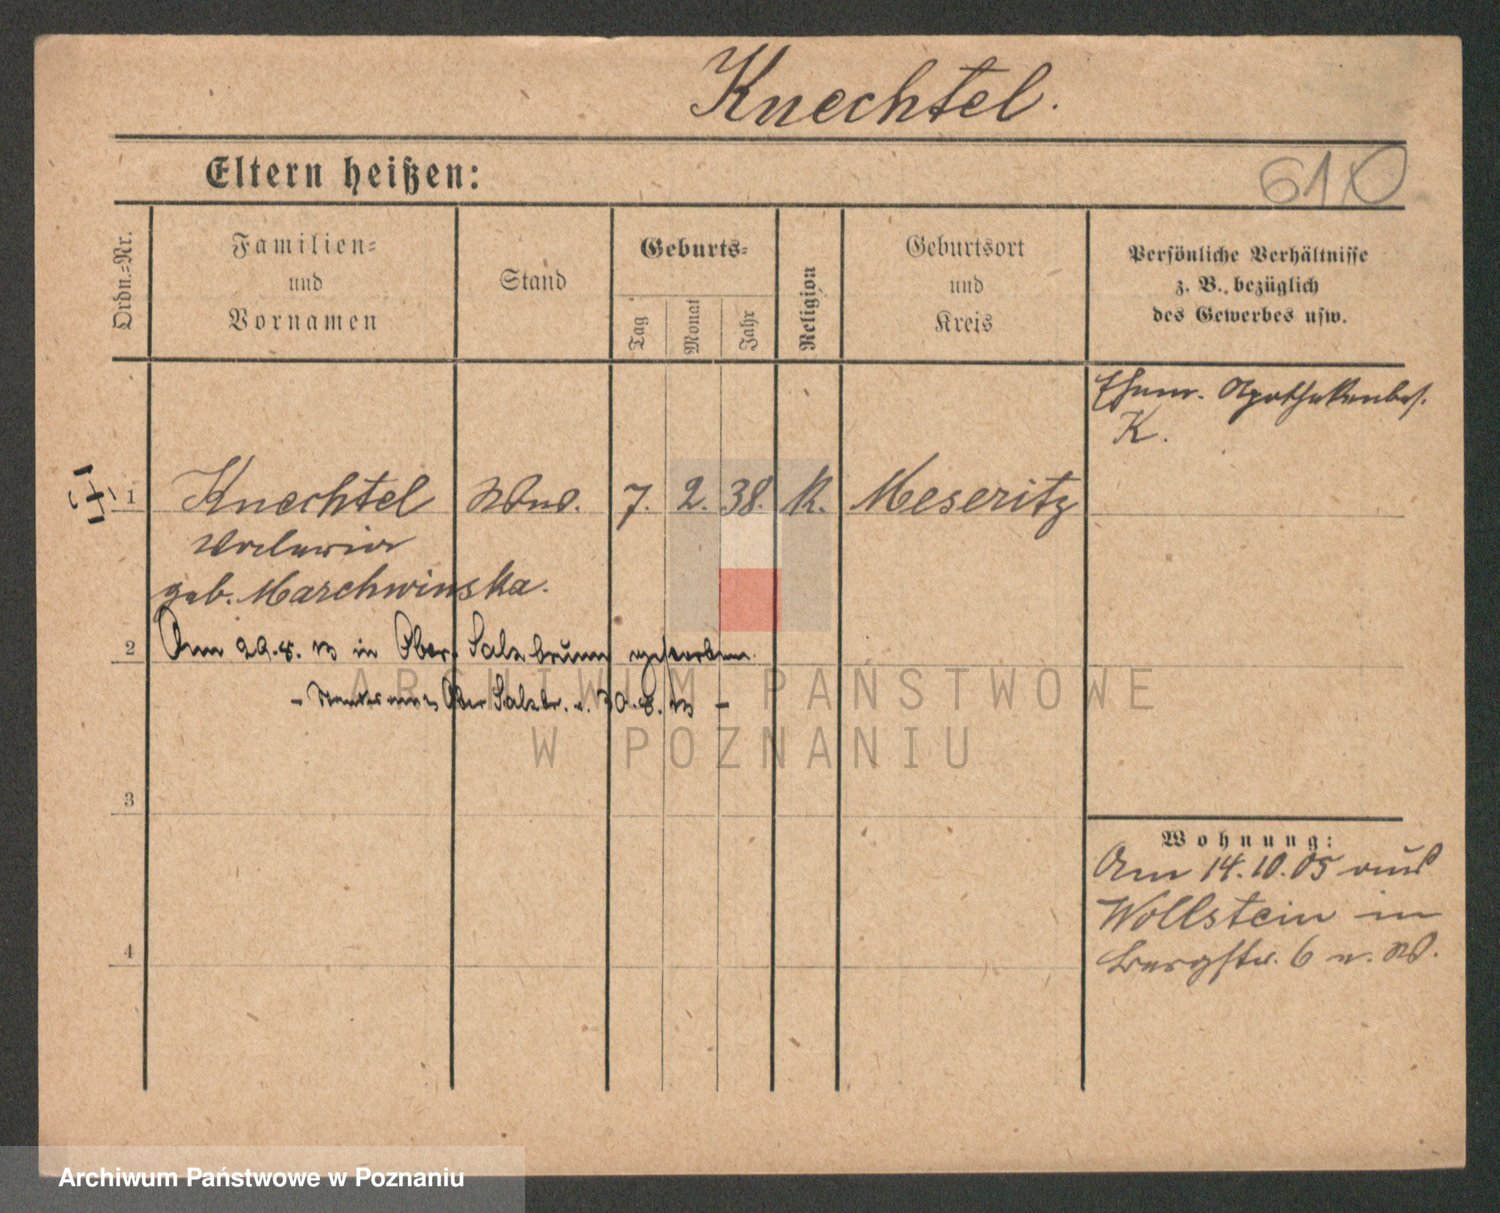 Knechtel.
Eltern heißen:
610
Ordn.-Nr.
Familien-
und
Vornamen
Stand
Geburts-
Tag
Monat
Jahr
Religion
Geburtsort
und
Kreis
Persönliche Verhältnisse
z. B. bezüglich
des Gewerbes usw.
Ehem. Apothekenbes.
K.
1
Knechtel
Wwe.
7. 2. 38.
K.
Meseritz
Valeria
geb. Marchwinska.
2
Am 29.8. 13 in Ober Salzbrunn gestorben.
Ober Salzbr. v. 30.8.13 -
3
4
Wohnung:
Am 14.10.05 aus
Wollstein in
Bergstr. 6 n. W.
ARCHIWUM PAŃSTWOWE
W POZNANIU
Archiwum Państwowe w Poznaniu